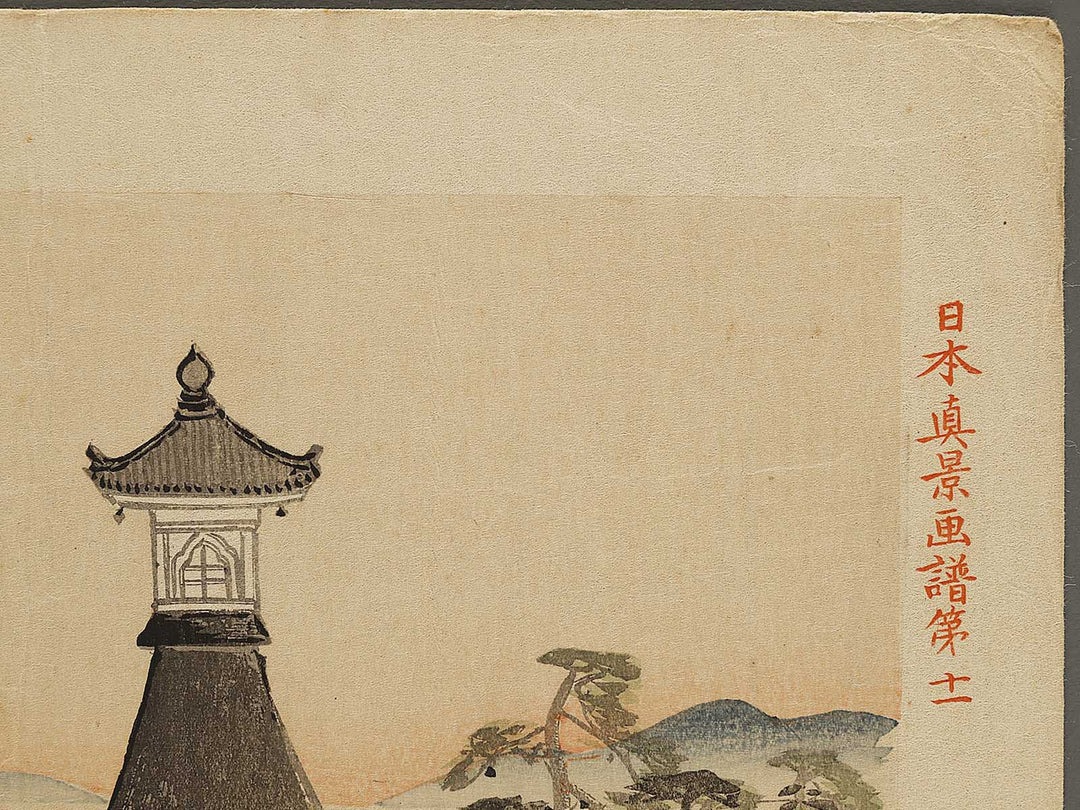 日本真景画譜第十一